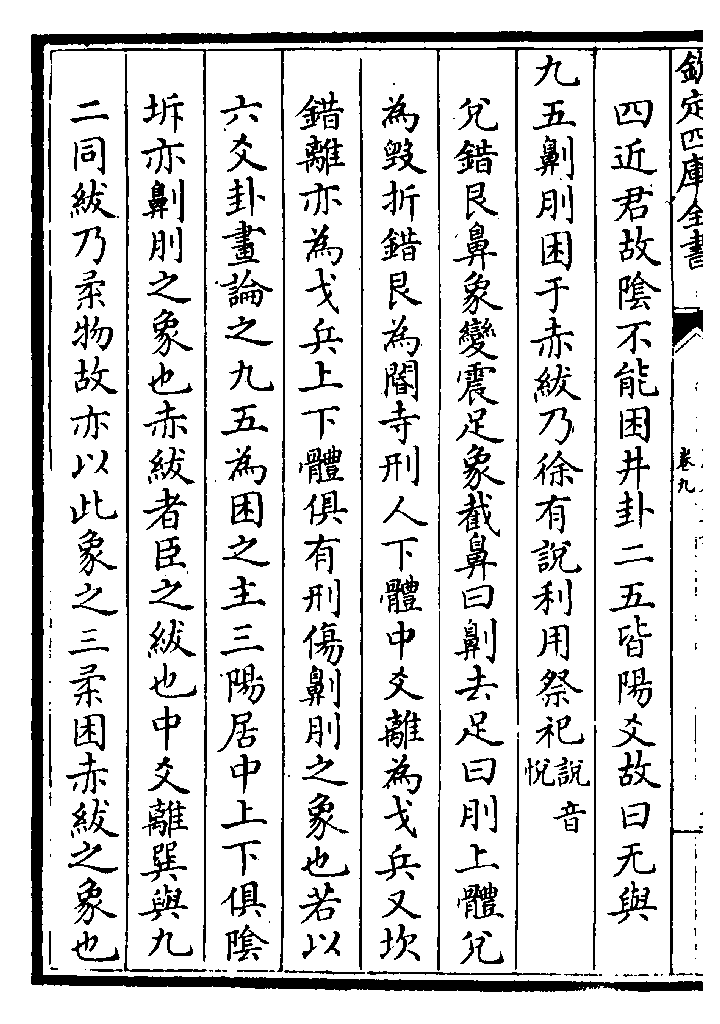 欽定四庫全書
卷九
四近君故陰不能困井卦二五皆陽爻故曰无與
九五劓刖困于赤紱乃徐有說利用祭祀說音悅
兌錯艮鼻象變震足象截鼻曰劓去足曰刖上體兌
為毀折錯艮為閽寺刑人下體中爻離為戈兵又坎
錯離亦為戈兵上下體俱有刑傷劓刖之象也若以
六爻卦畫論之九五為困之主三陽居中上下俱陰
坼亦劓刖之象也赤紱者臣之紱也中爻離巽與九
二同紱乃柔物故亦以此象之三柔困赤紱之象也